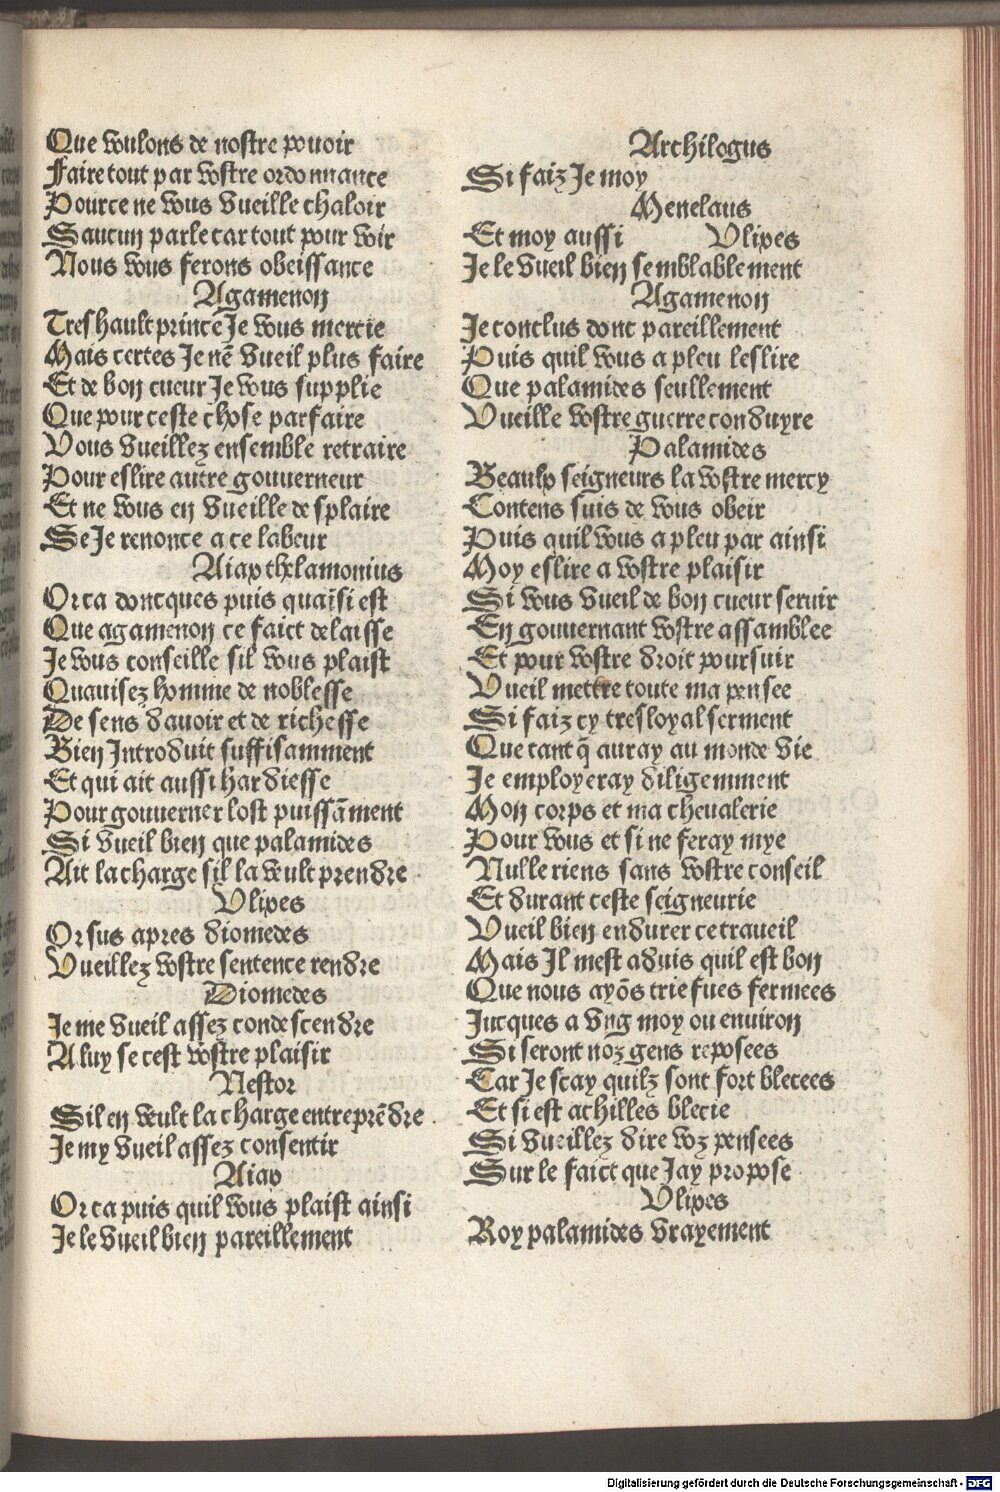 Que voulons de nostre pouoir
Faire tout par vostre ordonnance
Pource ne vous vueille chaloir
Saucun parle car tout pour voir
Nous vous ferons obeissance
Agamenon
Treshault prince Je vous mercie
Mais certes Je nẽ vueil plus faire
Et de bon cueur Je vous supplie
Que pour ceste chose parfaire
Vous vueillez ensemble retraire
Pour eslire autre gouuerneur
Et ne vous en vueille desplaire
Se Je renonce a ce labeur
Aiax thelamonius
Or ca doncques puis quaĩsi est
Que agamenon ce faict delaisse
Je vous conseille sil vous plaist
Quauisez homme de noblesse
De sens dauoir et de richesse
Bien Introduit suffisamment
Et qui ait aussi hardiesse
Pour gouuerner lost puissãment
Si vueil bien que palamides
Ait la charge sil la veult prendre
Vlixes
Or sus apres diomedes
Vueillez vostre sentence rendre
Diomedes
Je me vueil assez condescendre
A luy se cest vostre plaisir
Nestor
Sil en veult la charge entreprẽdre
Je my vueil assez consentir
Aiax
Or ca puis quil vous plaist ainsi
Je le vueil bien pareillement
Archilogus
Si faiz Je moy
Menelaus
Et moy aussi Vlixes
Je le vueil bien semblablement
Agamenon
Je conclus donc pareillement
Puis quil vous a pleu leslire
Que palamides seullement
Vueille vostre guerre conduyre
Palamides
Beaulx seigneurs la vostre mercy
Contens suis de vous obeir
Puis quil vous a pleu par ainsi
Moy eslire a vostre plaisir
Si vous vueil de bon cueur seruir
En gouuernant vostre assamblee
Et pour vostre droit poursuir
Vueil mettre toute ma pensee
Si faiz cy tresloyal serment
Que tant q̃ auray au monde vie
Je employeray diligemment
Mon corps et ma cheualerie
Pour vous et si ne feray mye
Nulle riens sans vostre conseil
Et durant ceste seigneurie
Vueil bien endurer ce traueil
Mais Il mest aduis quil est bon
Que nous ayõs triefues fermees
Jucques a vng moy ou enuiron
Si seront noz gens reposees
Car Je scay quilz sont fort blecees
Et si est achilles blecie
Si vueillez dire voz pensees
Sur le faict que Jay propose
Vlixes
Roy palamides vrayement
Digitalisierung gefördert durch die Deutsche Forschungsgemeinschaft - DFG